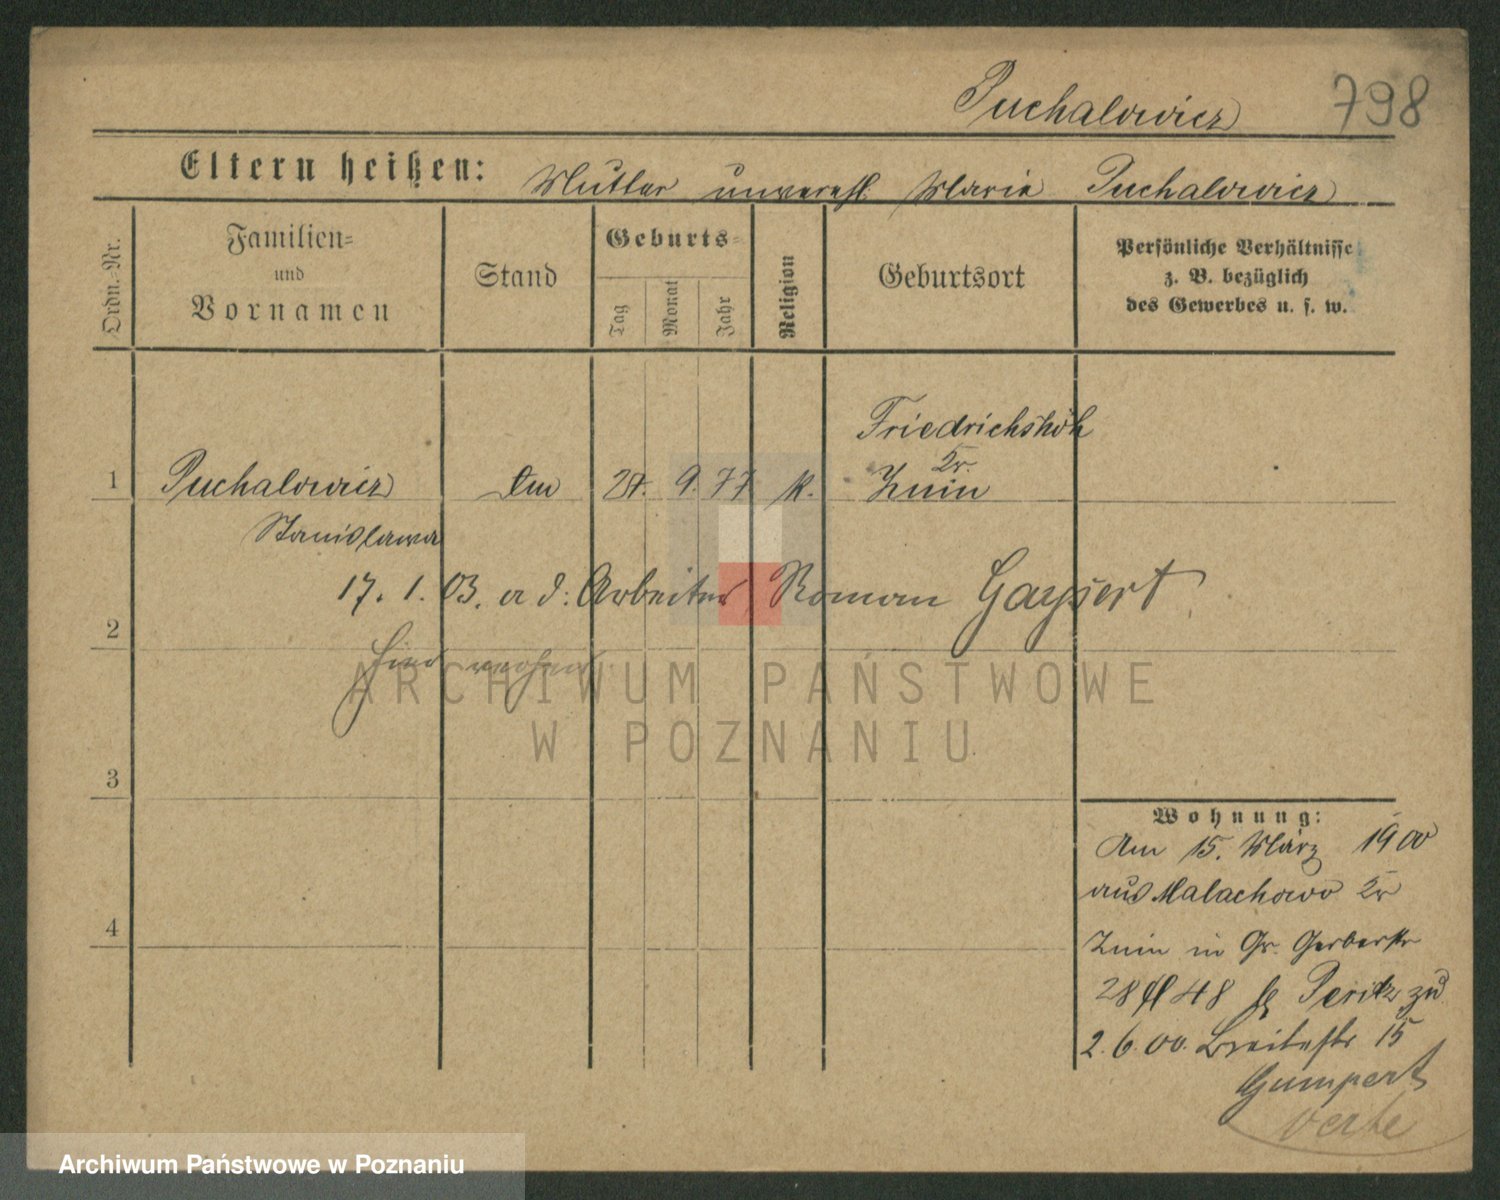 Puchalowicz 798
Eltern heißen: Mutter unverehl. Marie Puchalowicz
Ordn.-Nr.
Familien-
und
Vornamen
Stand
Geburts-
Tag
Monat
Jahr
Religion
Geburtsort
Persönliche Verhältnisse
z. B. bezüglich
des Gewerbes u. s. w.
Friedrichshöh
Kr.
1 Puchalowicz 9. 77 k. Znin
Stanislawa
17. 1. 03. a d: Arbeiter Roman Gaysert
2
ARCHIWUM PAŃSTWOWE
W POZNANIU
3
Wohnung:
Am 15. März 1900
aus Malachowo Kr
4
Znin in Gr. Gerberstr
28 48 b Peritz zu
2. 6. 00. Breitestr 15
Gumpert
verte
Archiwum Państwowe w Poznaniu